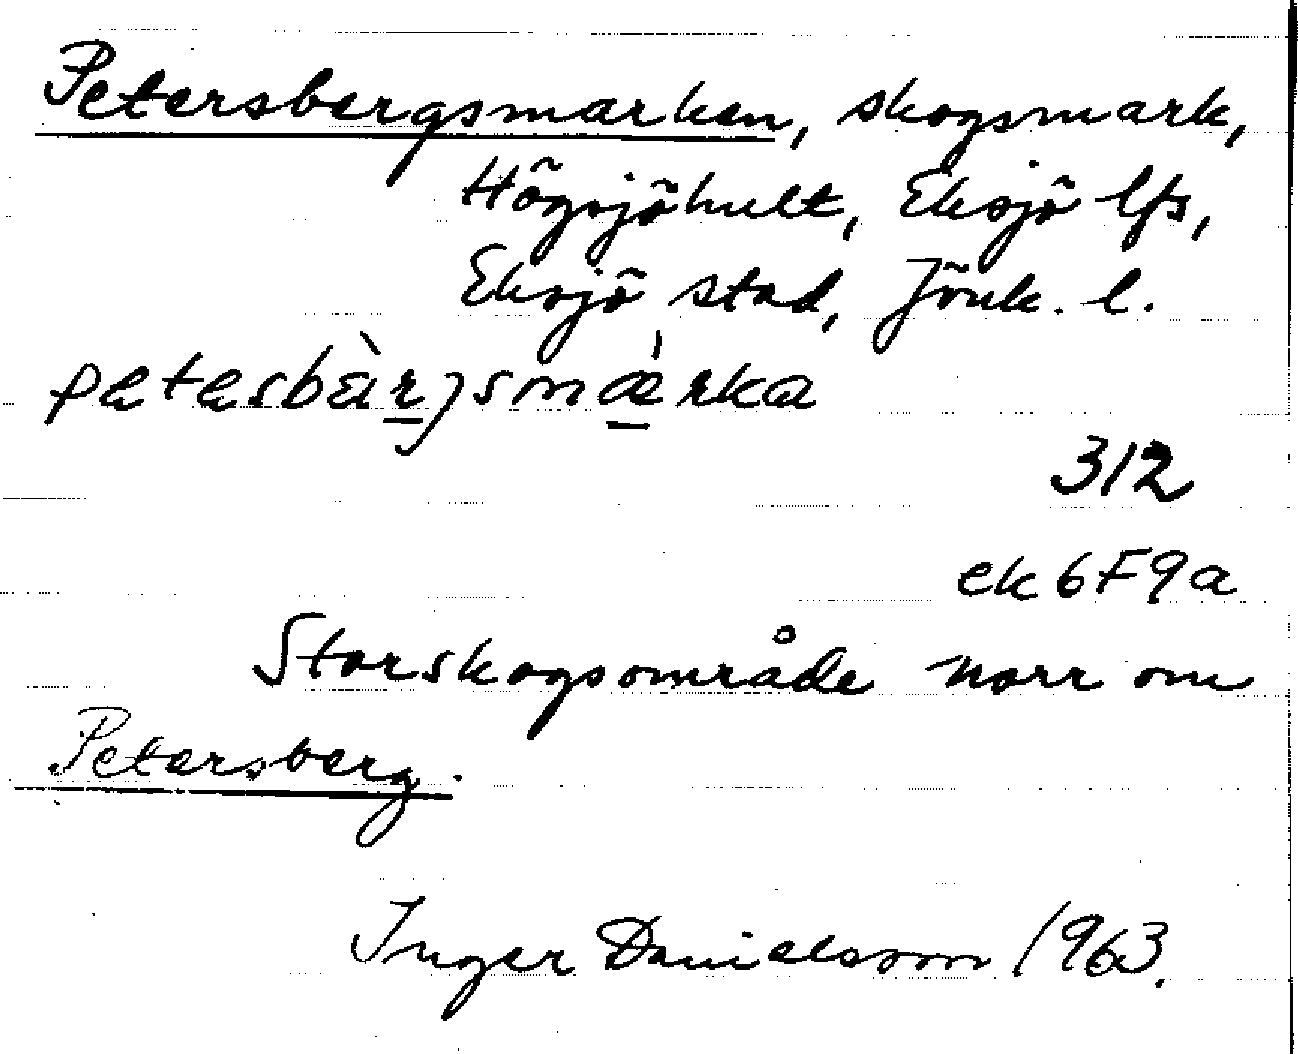 Petersbergsmarken, skogsmark,
Högsjöhult, Eksjö lfs,
Eksjö stad, Jönk. l.
petesbàrjsmàrka
312
ek 6F9a
Storskogsområde norr om
Petersberg.
Inger Danielsson 1963.